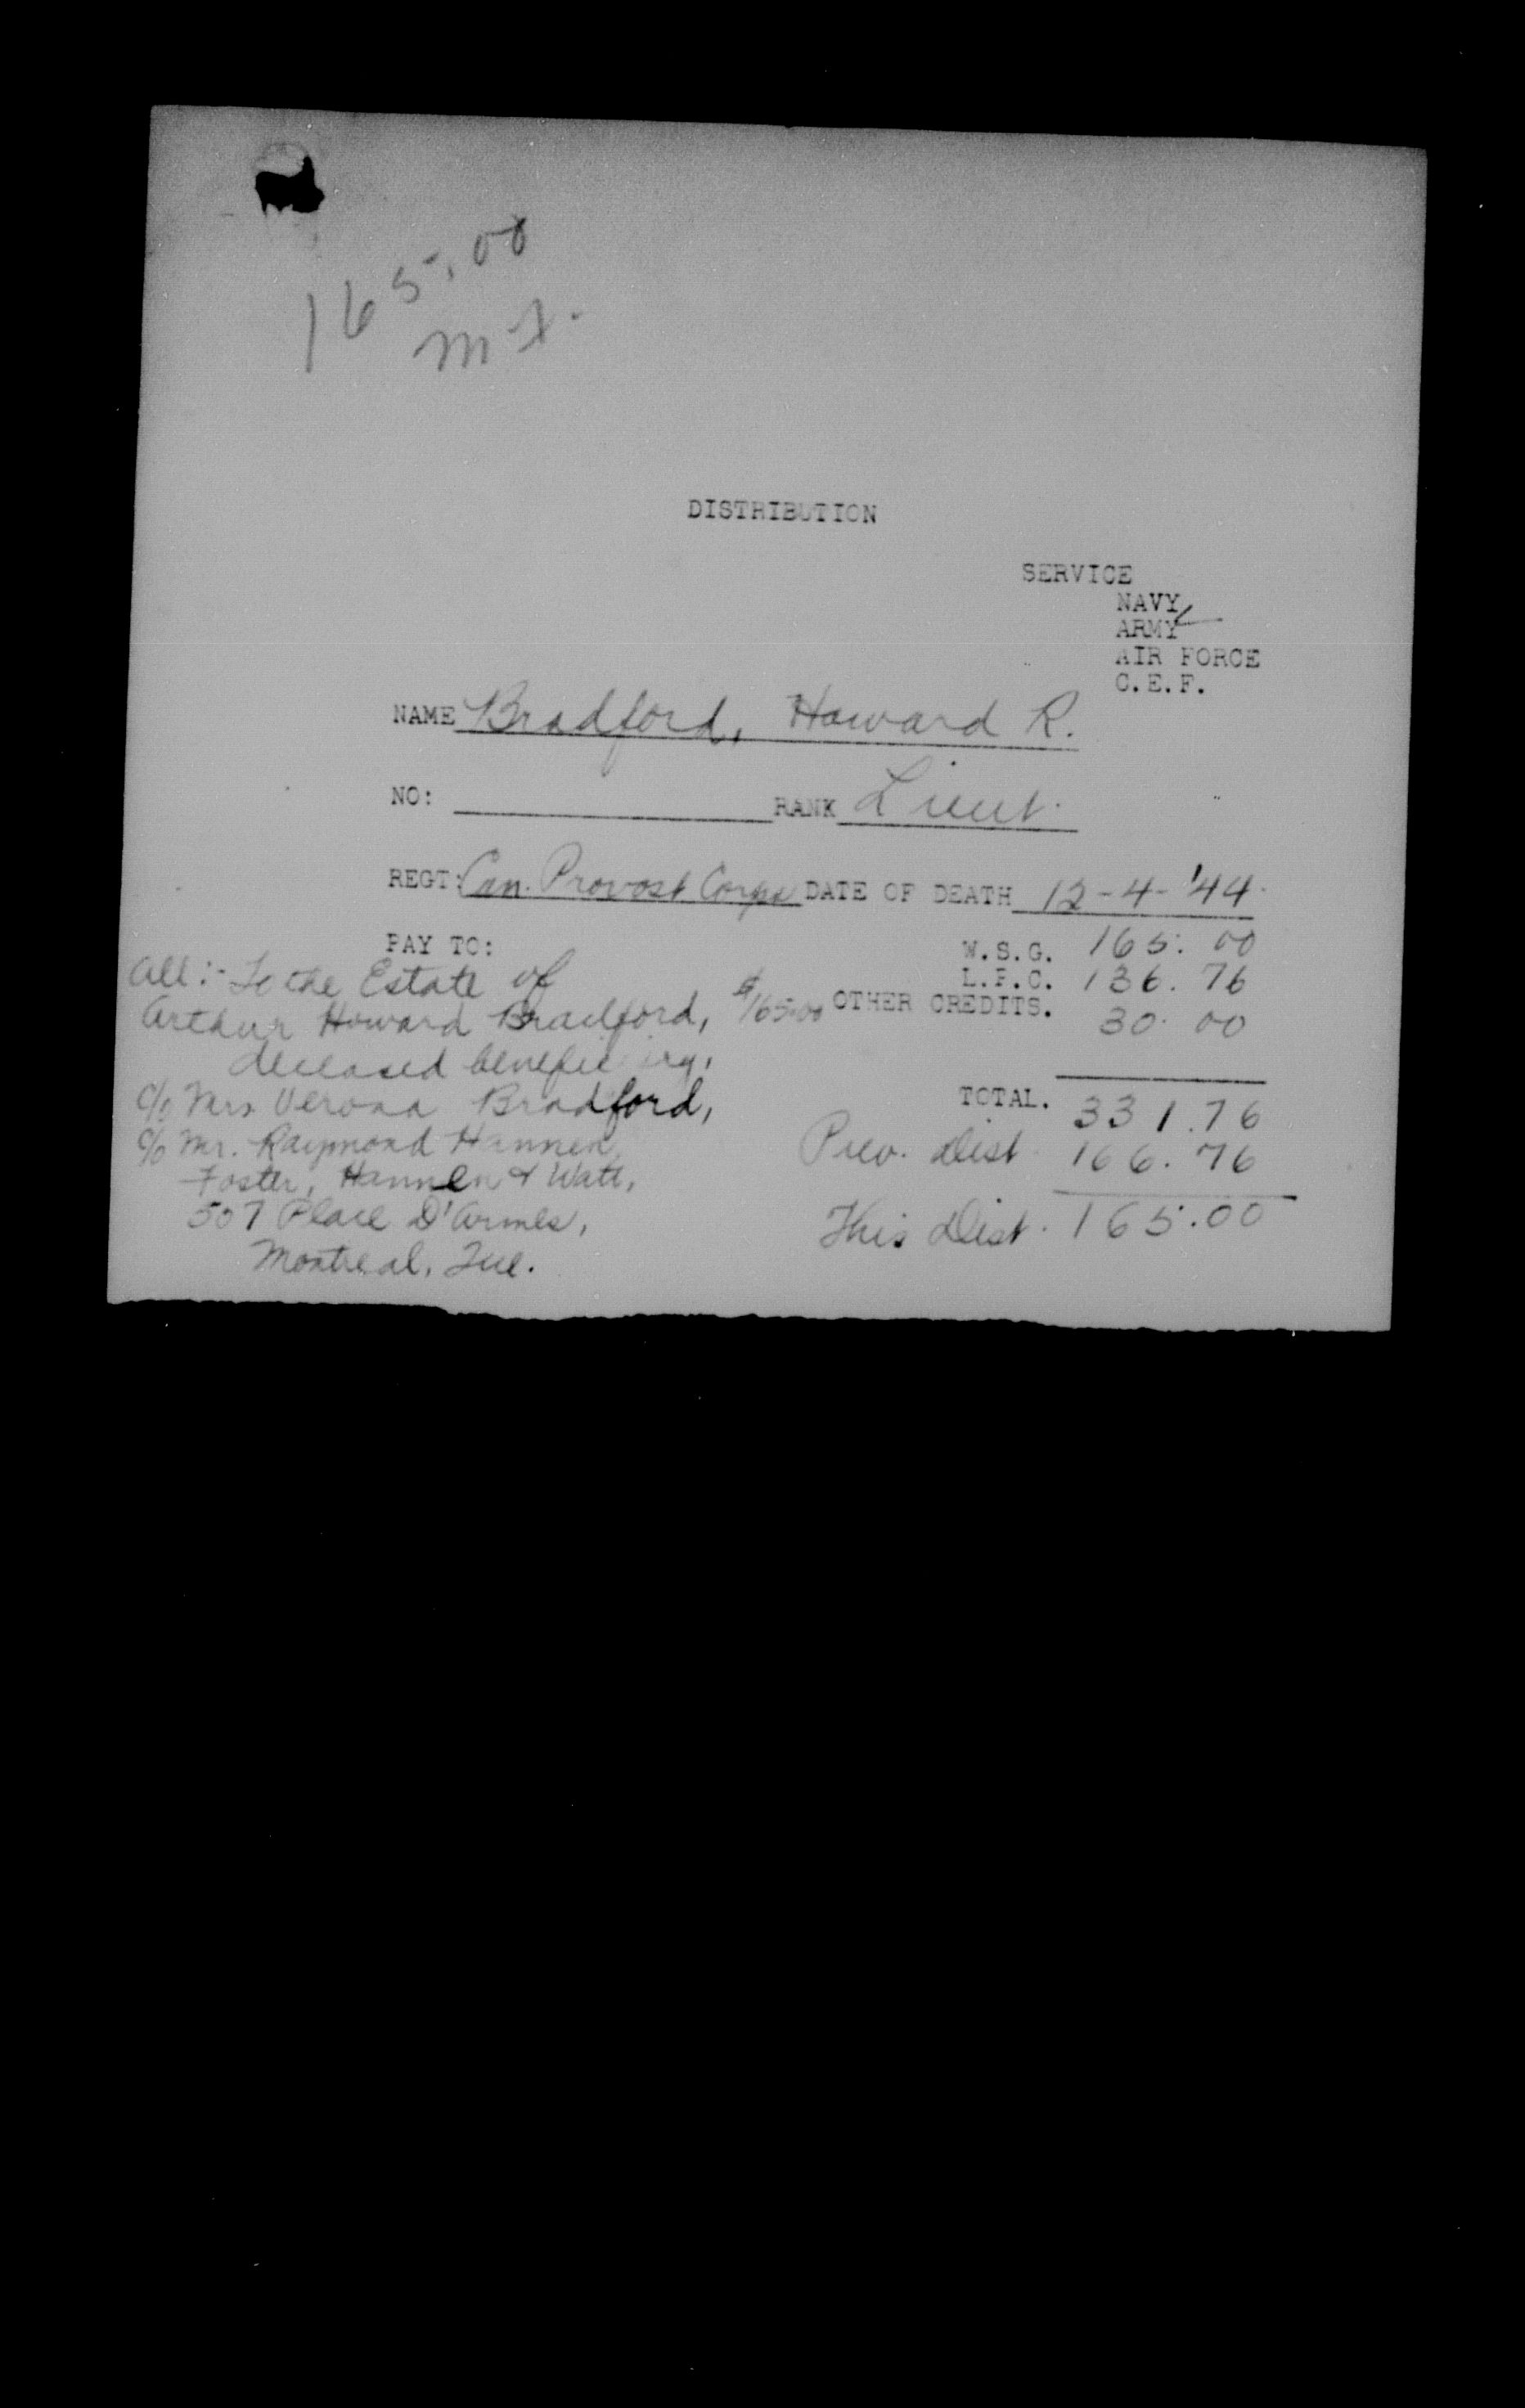 165.00
DISTRIBUTION
SERVICE
NAVY
ARMY ✓
AIR FORCE
C.E.F.
NAME Bradford, Howard R.
NO: RANK Lieut.
REGT: Can. Provost Corps DATE OF DEATH 12-4-'44.
PAY TO: W.S.G. 165.00
All:- To the Estate of L.P.C. 136.76
Arthur Howard Bradford, $165.00 OTHER CREDITS. 30.00
deceased beneficiary,
c/o Mrs Verona Bradford, TOTAL. 331.76
c/o Mr. Raymond Hannen, Prev. Dist. 166.76
Foster, Hannen & Watt,
507 Place D'Armes, This Dist. 165.00
Montreal, Que.